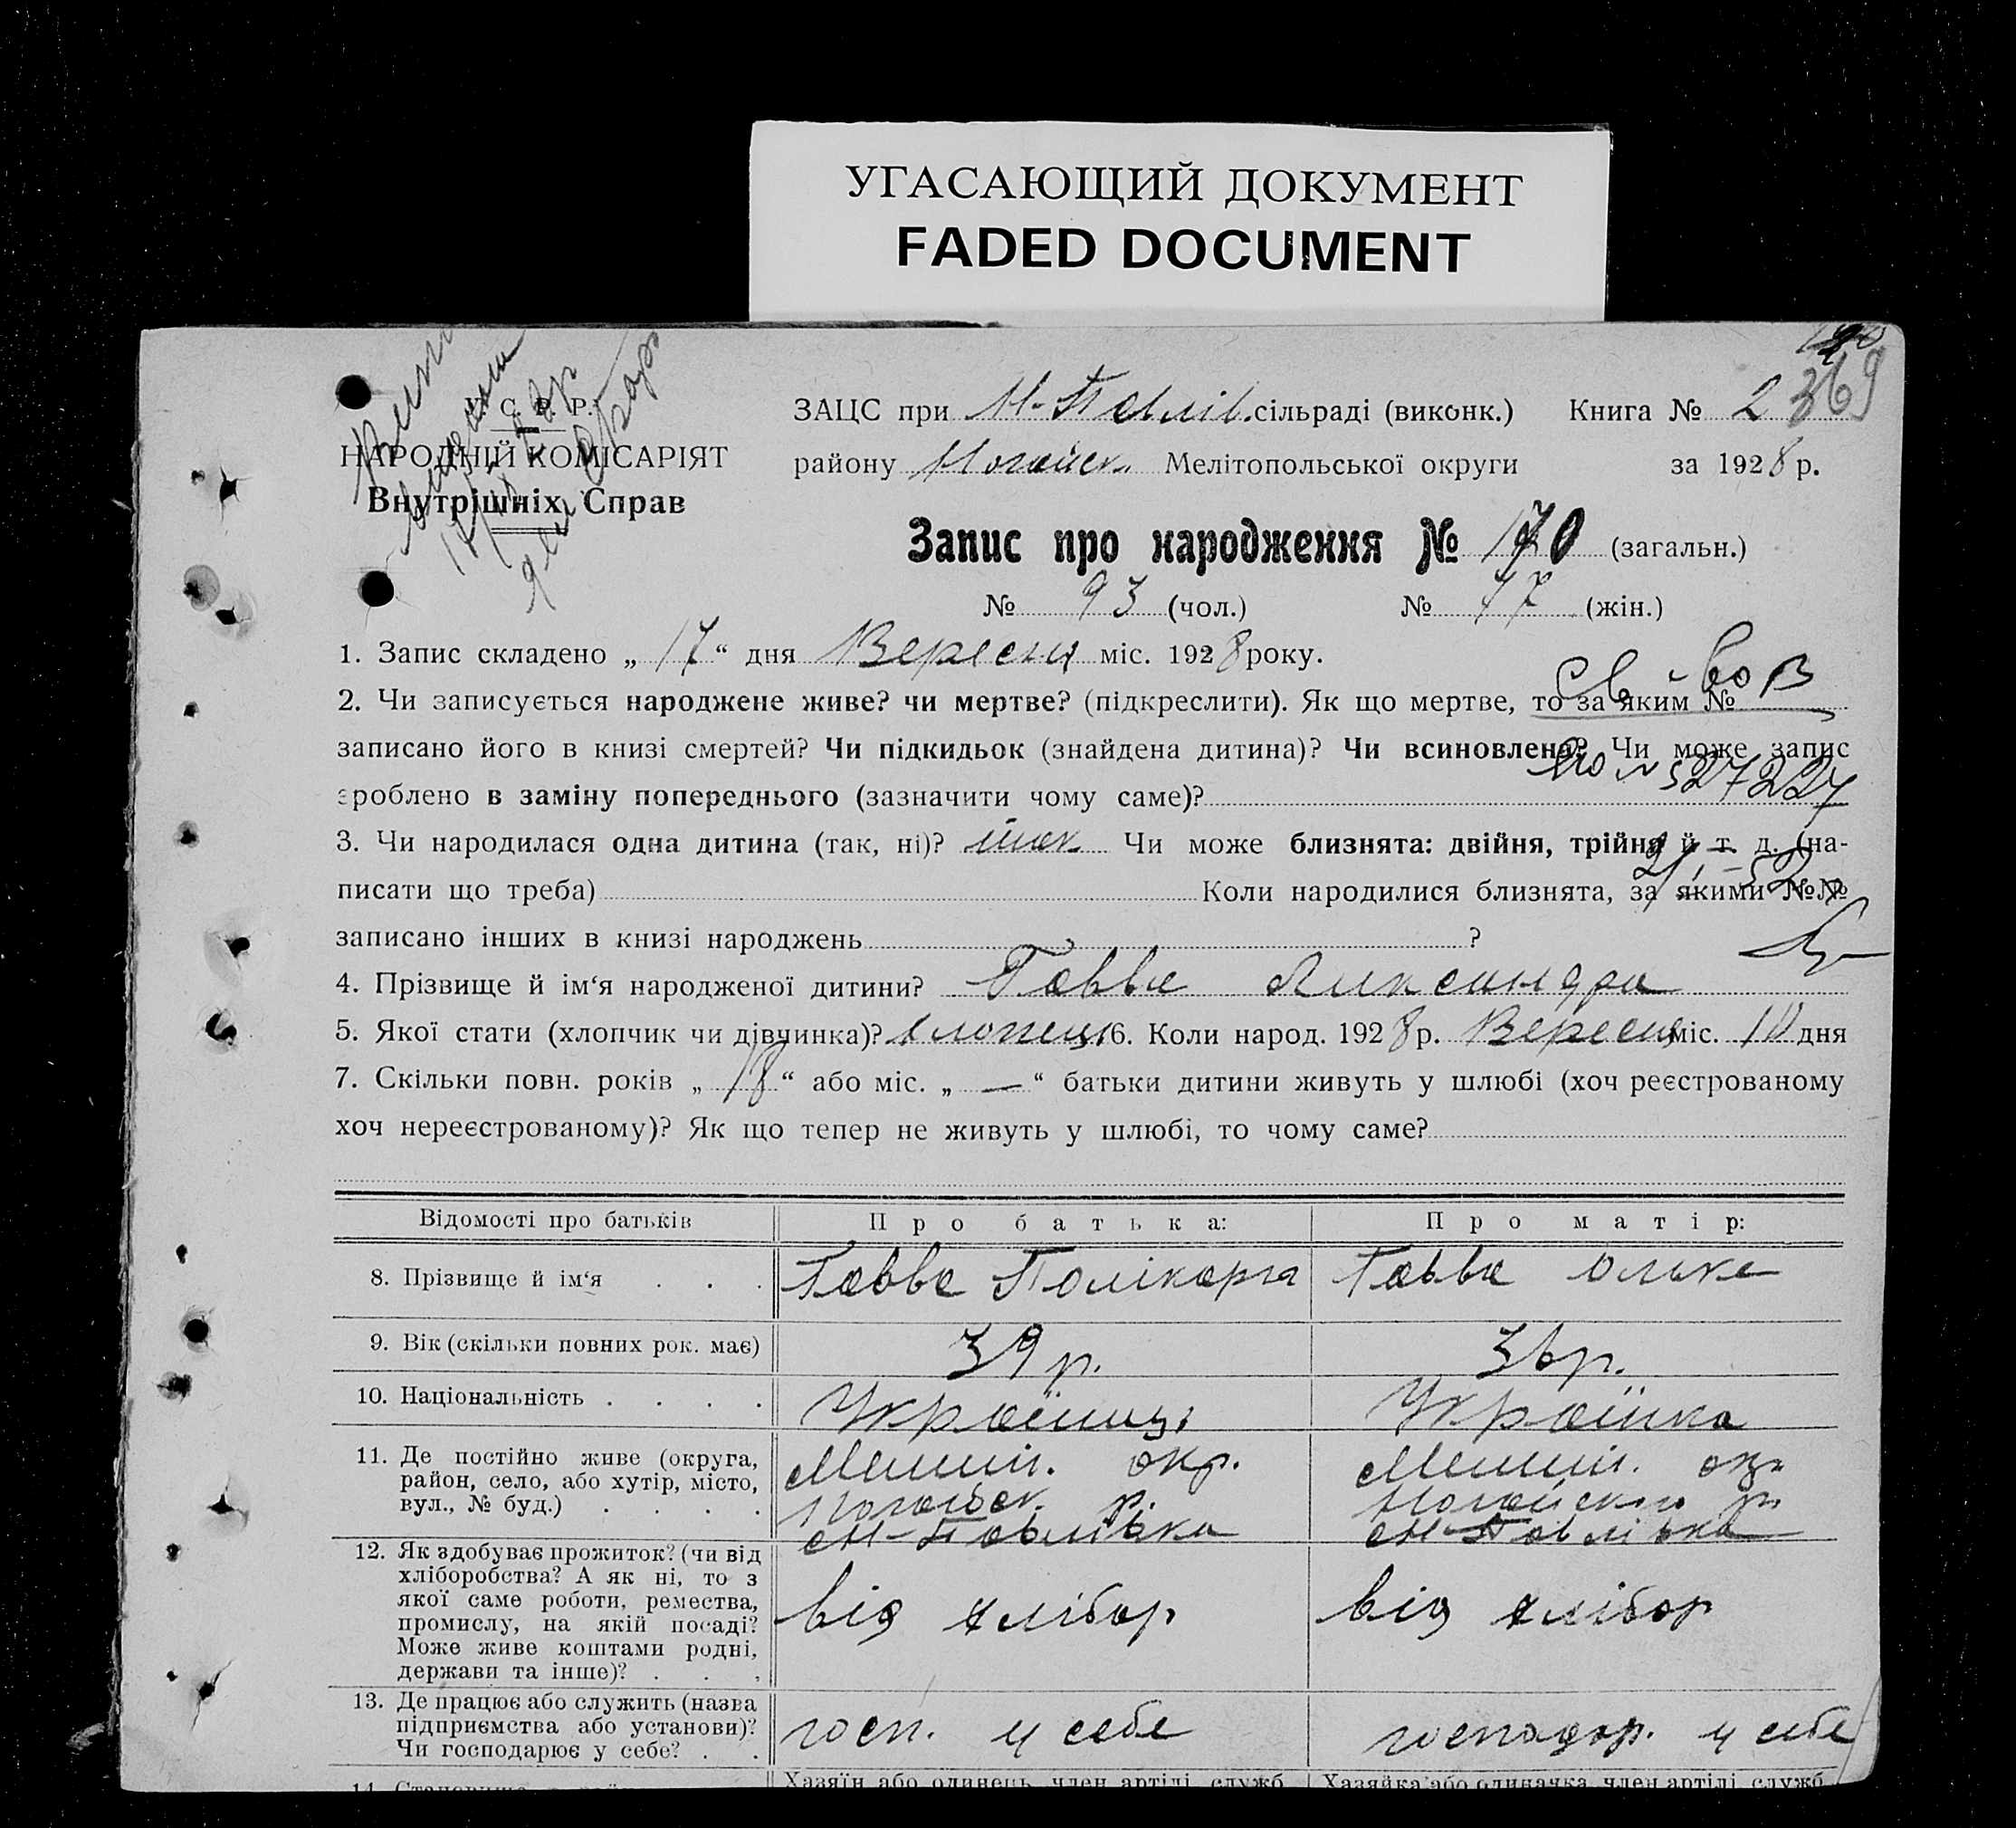 УГАСАЮЩИЙ ДОКУМЕНТ
FADED DOCUMENT
369
У. С. Р. Р.
НАРОДНІЙ КОМІСАРІЯТ
Внутрішніх Справ
ЗАЦС при Н-Павлів. сільраді (виконк.) Книга № 2
району Ногайськ. Мелітопольської округи за 1928 р.
Запис про народження № 170 (загальн.)
№ 93 (чол.) № 77 (жін.)
1. Запис складено „ 17 “ дня Вересня міс. 1928 року.
2. Чи записується народжене живе? чи мертве? (підкреслити). Як що мертве, то за яким №
записано його в книзі смертей? Чи підкидьок (знайдена дитина)? Чи всиновлено? Чи може запис
зроблено в заміну попереднього (зазначити чому саме)?
3. Чи народилася одна дитина (так, ні)? так Чи може близнята: двійня, трійня й т. д. (на-
писати що треба) Коли народилися близнята, за якими №№
записано інших в книзі народжень ?
4. Прізвище й ім‘я народженої дитини? Гавва Александра
5. Якої стати (хлопчик чи дівчинка)? хлопець 6. Коли народ. 1928 р. Вересня міс. 10 дня
7. Скільки повн. років „ 18 “ або міс. „ — “ батьки дитини живуть у шлюбі (хоч реєстрованому
хоч нереєстрованому)? Як що тепер не живуть у шлюбі, то чому саме?
Відомості про батьків Про батька: Про матір:
8. Прізвище й ім‘я . . . Гавва Полікарп Гавва Ольга
9. Вік (скільки повних рок. має) 39 р. 36 р.
10. Національність . . . . Українець Українка
11. Де постійно живе (округа,
район, село, або хутір, місто,
вул., № буд.) . . . .
Меліт. окр.
Ногайськ. р.
Н-Павлівка
Меліт. окр.
Ногайського р.
Н-Павлівка
12. Як здобуває прожиток? (чи від
хліборобства? А як ні, то з
якої саме роботи, ремества,
промислу, на якій посаді?
Може живе коштами родні,
держави та інше)? . . .
від хлібор від хлібор
13. Де працює або служить (назва
підприємства або установи)?
Чи господарює у себе? . .
госп. у себе господар. у себе
Хазяїн або одинець, член артілі, служб. Хазяйка або одиначка, член артілі, служб.